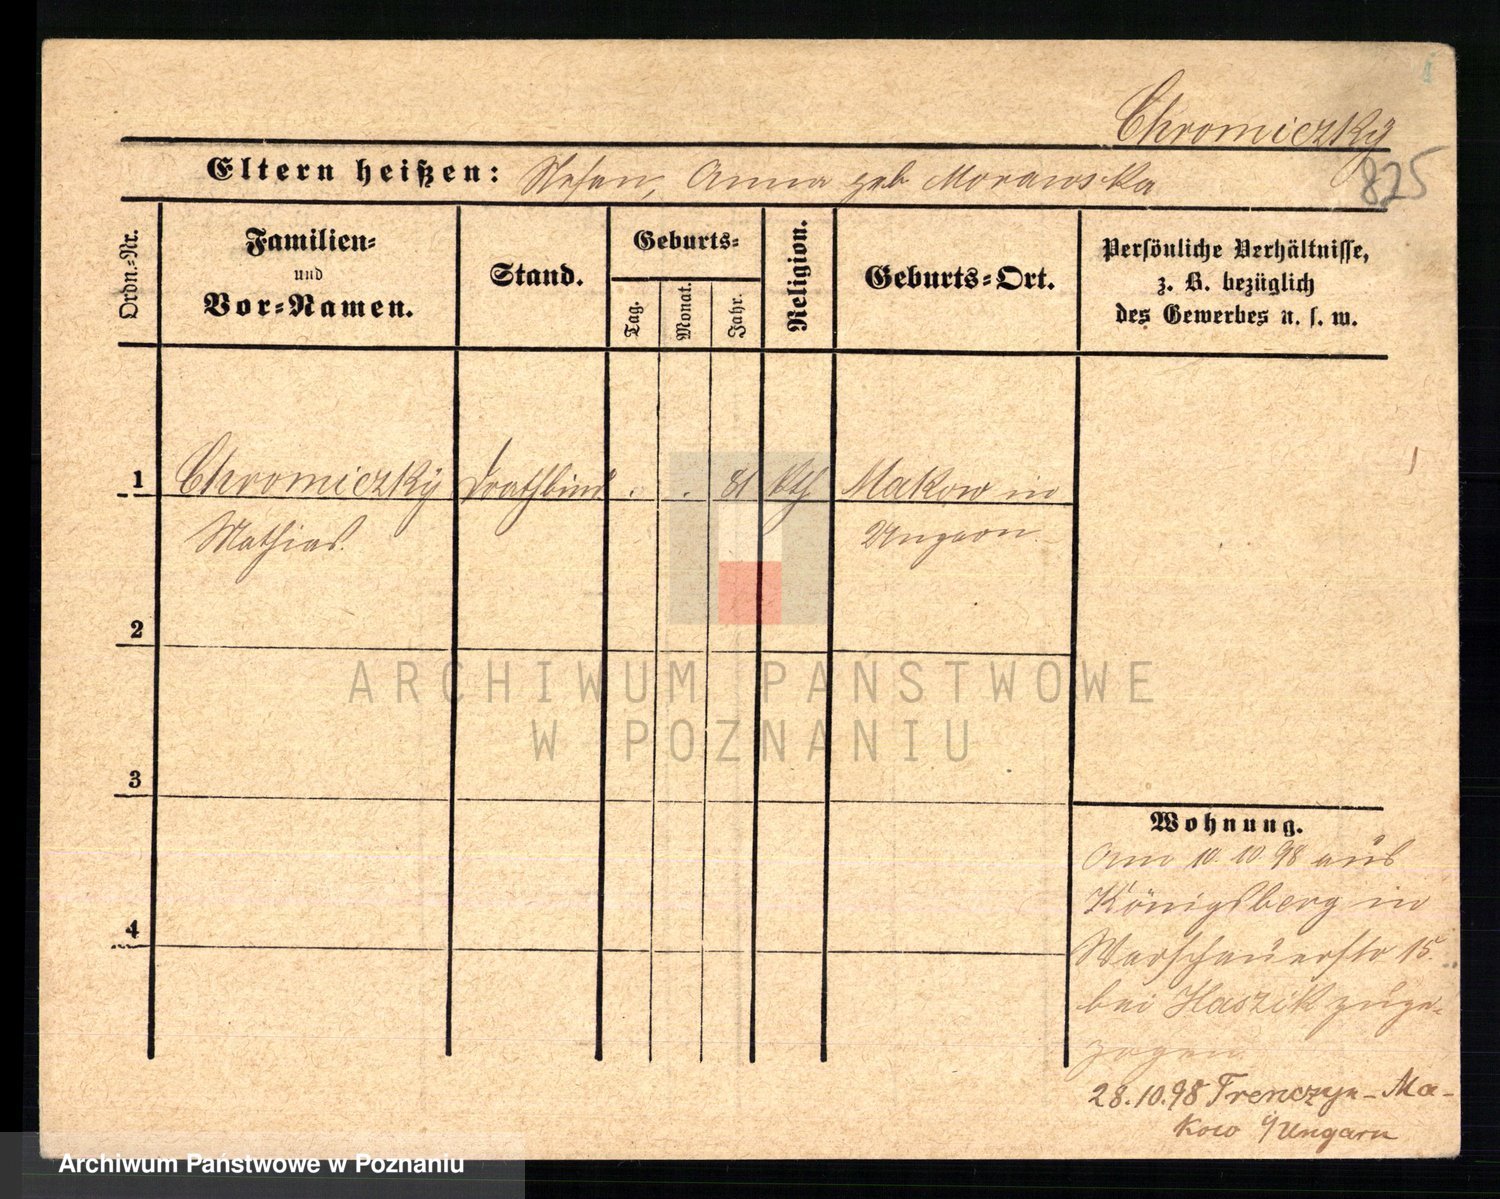 Chromiczký
825
Eltern heißen: Stefan, Anna geb Morawska
Ordn.=Nr.
Familien=
und
Vor=Namen.
Stand.
Geburts=
Tag.
Monat.
Jahr.
Religion.
Geburts=Ort.
Persönliche Verhältnisse,
z. B. bezüglich
des Gewerbes u. s. w.
1
Chromiczký Drathbind . . 81 kth Makow in
Mathias. Ungarn
2
3
4
ARCHIWUM PAŃSTWOWE
W POZNANIU
Wohnung.
Am 10.10.98 aus
Königsberg in
Warschauerstr 15.
bei Haszik zuge-
zogen
28.10.98 Trenczyn-Ma-
kow i/Ungarn
Archiwum Państwowe w Poznaniu